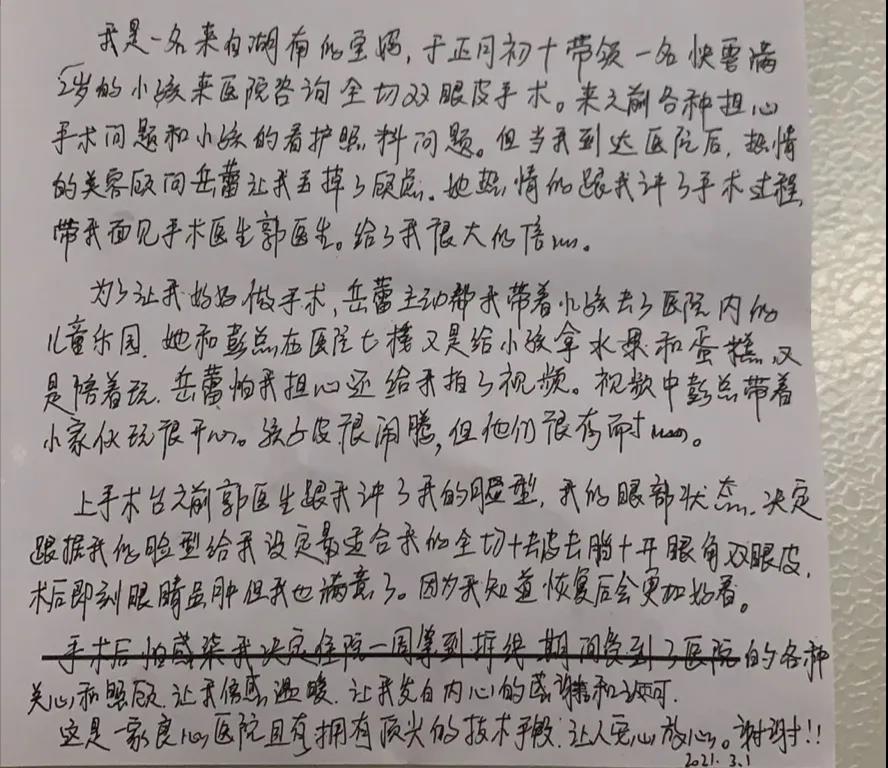 我是一名来自湖南的宝妈，于正月初十带领一名快要满
2岁的小孩来医院咨询全切双眼皮手术。来之前各种担心
手术问题和小孩的看护照料问题。但当我到达医院后，热情
的美容顾问岳蕾让我丢掉了顾虑。她热情的跟我讲了手术过程，
带我面见手术医生郭医生。给了我很大的信心。
为了让我好好做手术，岳蕾主动帮我带着小孩去了医院内的
儿童乐园，她和彭总在医院七楼又是给小孩拿水果和蛋糕，又
是陪着玩，岳蕾怕我担心还给我拍了视频。视频中彭总带着
小家伙玩很开心。孩子皮很闹腾，但他们很有耐心。
上手术台之前郭医生跟我讲了我的脸型，我的眼部状态，决定
跟据我的脸型给我设定最适合我的全切+去皮去脂+开眼角双眼皮，
术后即刻眼睛虽肿但我也满意了。因为我知道恢复后会更加好看。
手术后怕感染我决定住院一周等到拆线期间受到了医院的各种
关心和照顾，让我倍感温暖，让我发自内心的感谢和认可。
这是一家良心医院且有拥有顶尖的技术手段，让人安心放心。谢谢！！
2021.3.1